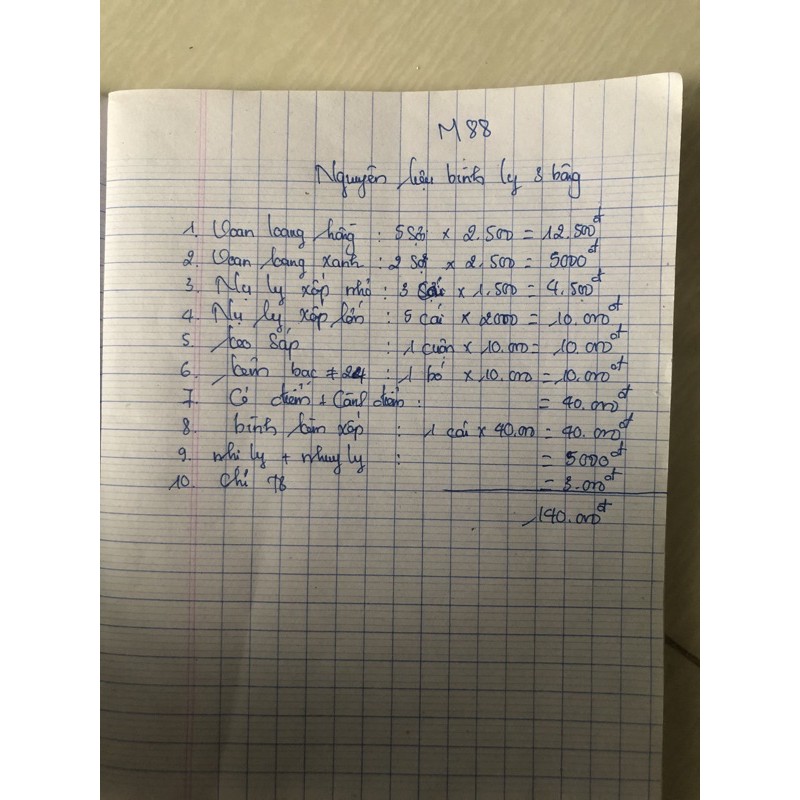 M88
Nguyên liệu bình ly 3 bông
1. Voan loang hồng : 5 sợi x 2.500 = 12.500đ
2. Voan loang xanh : 2 sợi x 2.500 = 5000đ
3. Nụ ly xốp nhỏ : 3 cái x 1.500 = 4.500đ
4. Nụ ly xốp lớn : 5 cái x 2000 = 10.000đ
5. keo sáp : 1 cuộn x 10.000 = 10.000đ
6. kẽm bạc # 24 : 1 bó x 10.000 = 10.000đ
7. Cỏ điểm + Cành điểm : = 40.000đ
8. bình cắm xốp : 1 cái x 40.000 = 40.000đ
9. nhị ly + nhụy ly : = 5000đ
10. Chỉ 78 = 3.000đ
140.000đ